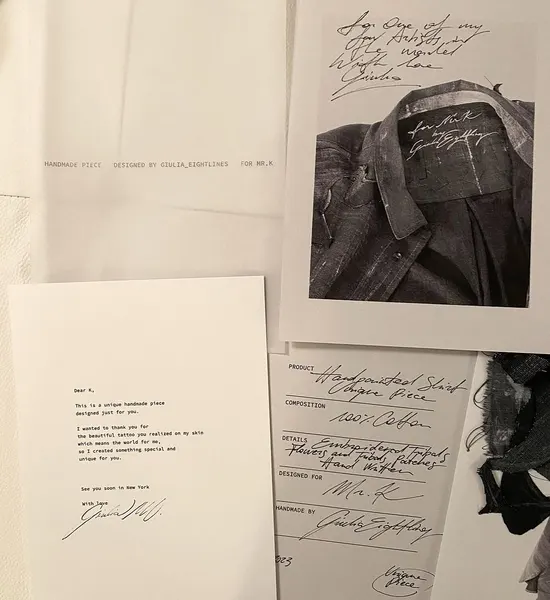 HANDMADE PIECE DESIGNED BY GIULIA_EIGHTLINES FOR MR.K
for One of my
fav Artists in
the world
With love
Giulia
for Mr.K
by
GiuliaEightlines
Dear K,
This is a unique handmade piece
designed just for you.
I wanted to thank you for
the beautiful tattoo you realized on my skin
which means the world for me,
so I created something special and
unique for you.
See you soon in New York
With love
PRODUCT Handpainted Shirt
Unique Piece
COMPOSITION
100% Cotton
DETAILS Embroidered Tribals
Flowers and Tribal Patches
Hand Written
DESIGNED FOR
Mr. K
HANDMADE BY
GiuliaEightlines
Unique
Piece